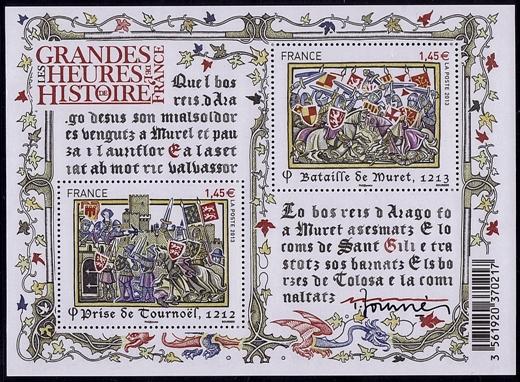 LES
GRANDES
HEURES
DE L'
HISTOIRE
DE
FRANCE
Quel bos
reis d'Ara
go desus son milsoldor
es vengutz a Murel et pau
za i lauriflor Ea la set
iat ab mot ric valvassor
FRANCE
1,45€
LA POSTE 2013
φ Bataille de Muret, 1213
FRANCE
1,45€
LA POSTE 2013
φ Prise de Tournoël, 1212
Lo bos reis d Arago fo
a Muret asesmatz E lo
coms de Sant Gili e tra
stotz sos barnatz Els bor
zes de Tolosa e la comi
naltatz
3 561920 370217